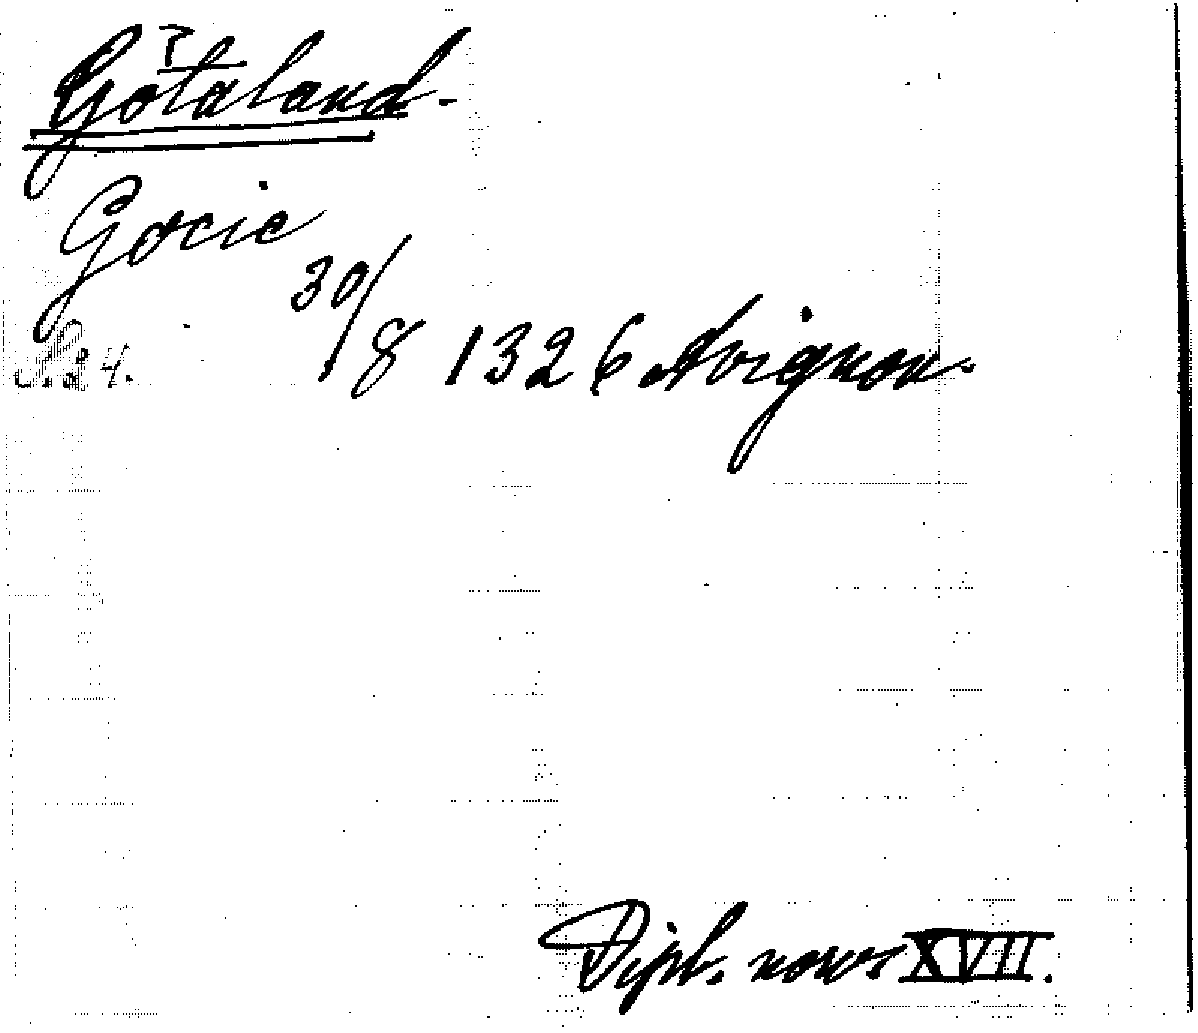 ?
Götaland.
Gocie
30/8 1326 Avignon.
S. 24.
Dipl. norv. XVII.